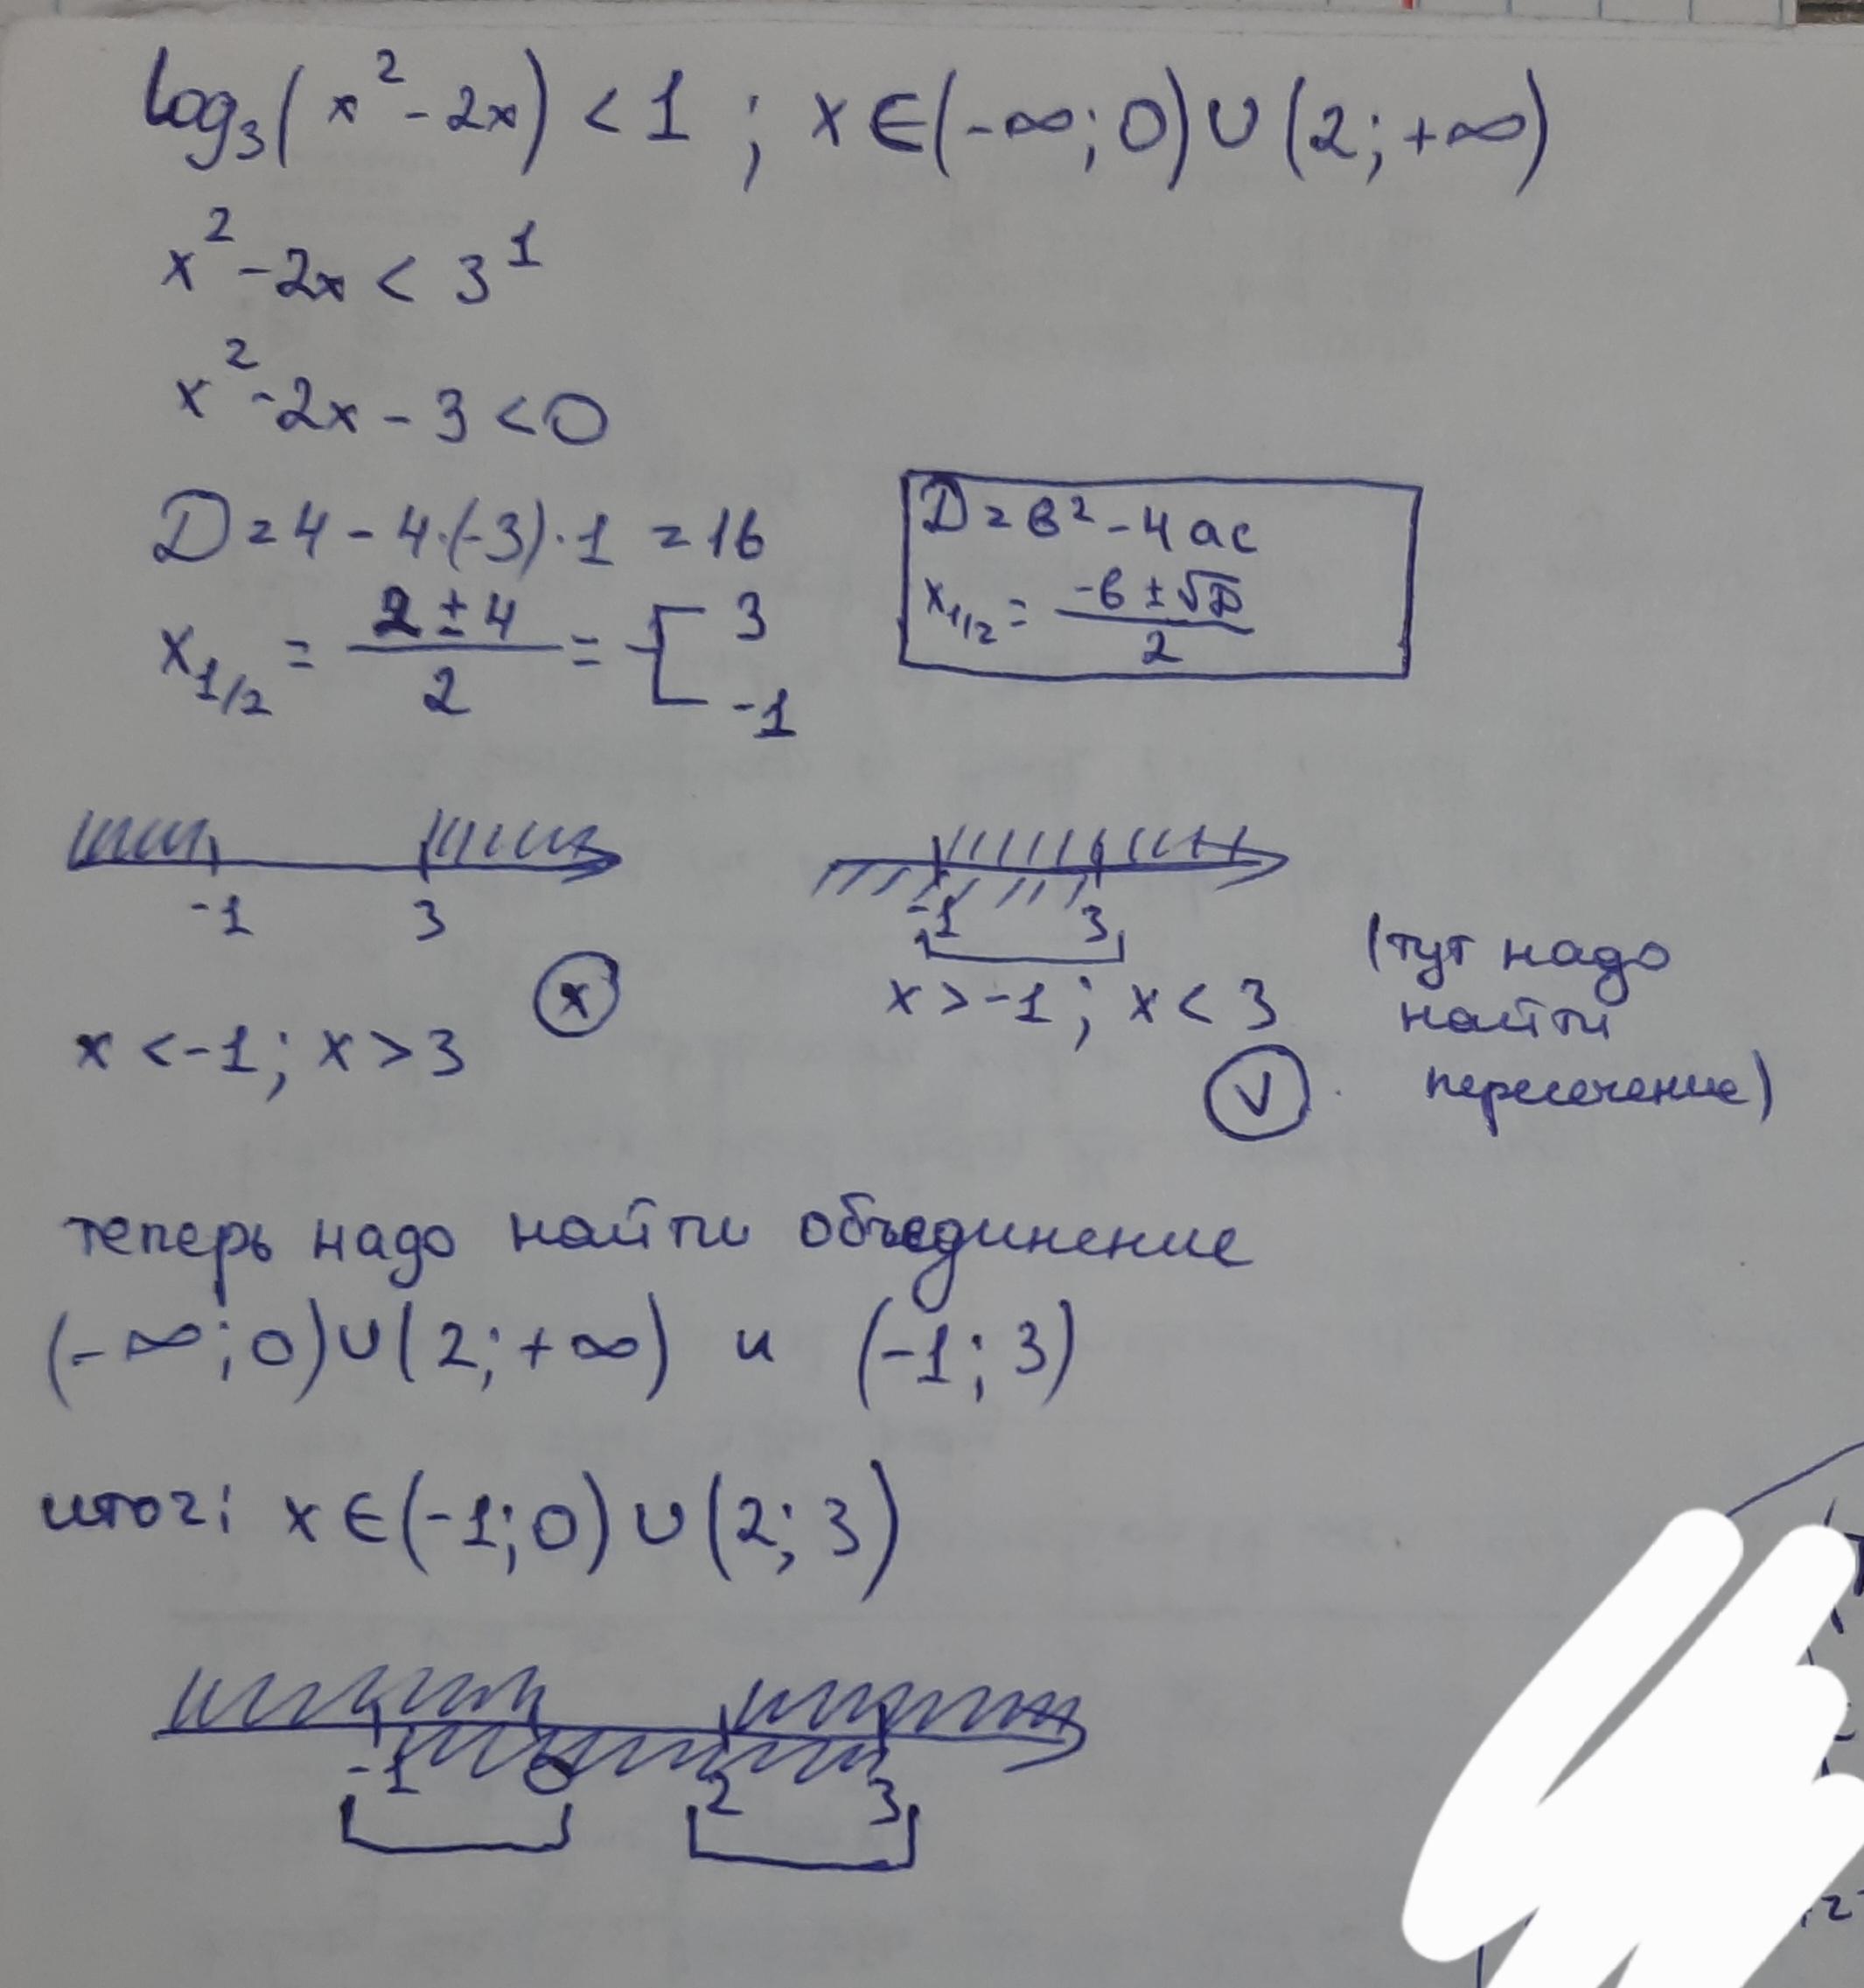 log₃(x² - 2x) < 1 ; x ∈ (-∞; 0) ∪ (2; +∞)
x² - 2x < 3¹
x² - 2x - 3 < 0
D = 4 - 4·(-3)·1 = 16
x₁/₂ = (2 ± 4)/2 = [ 3
-1
D = в² - 4ac
x₁/₂ = (-в ± √D)/2
-1 3
x < -1; x > 3 (x)
-1 3
x > -1; x < 3 (v)
(тут надо
найти
пересечение)
теперь надо найти объединение
(-∞; 0) ∪ (2; +∞) и (-1; 3)
итог: x ∈ (-1; 0) ∪ (2; 3)
-1 0 2 3